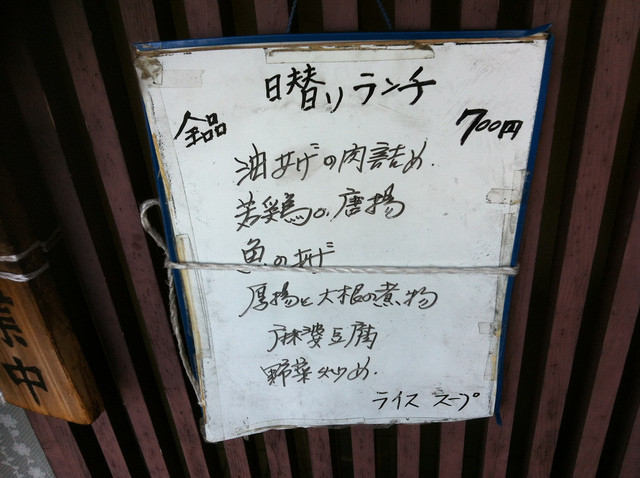 日替りランチ
全品 700円
油あげの肉詰め.
若鶏の唐揚
魚のあげ
厚揚と大根の煮物
麻婆豆腐
野菜炒め.
ライス スープ
中